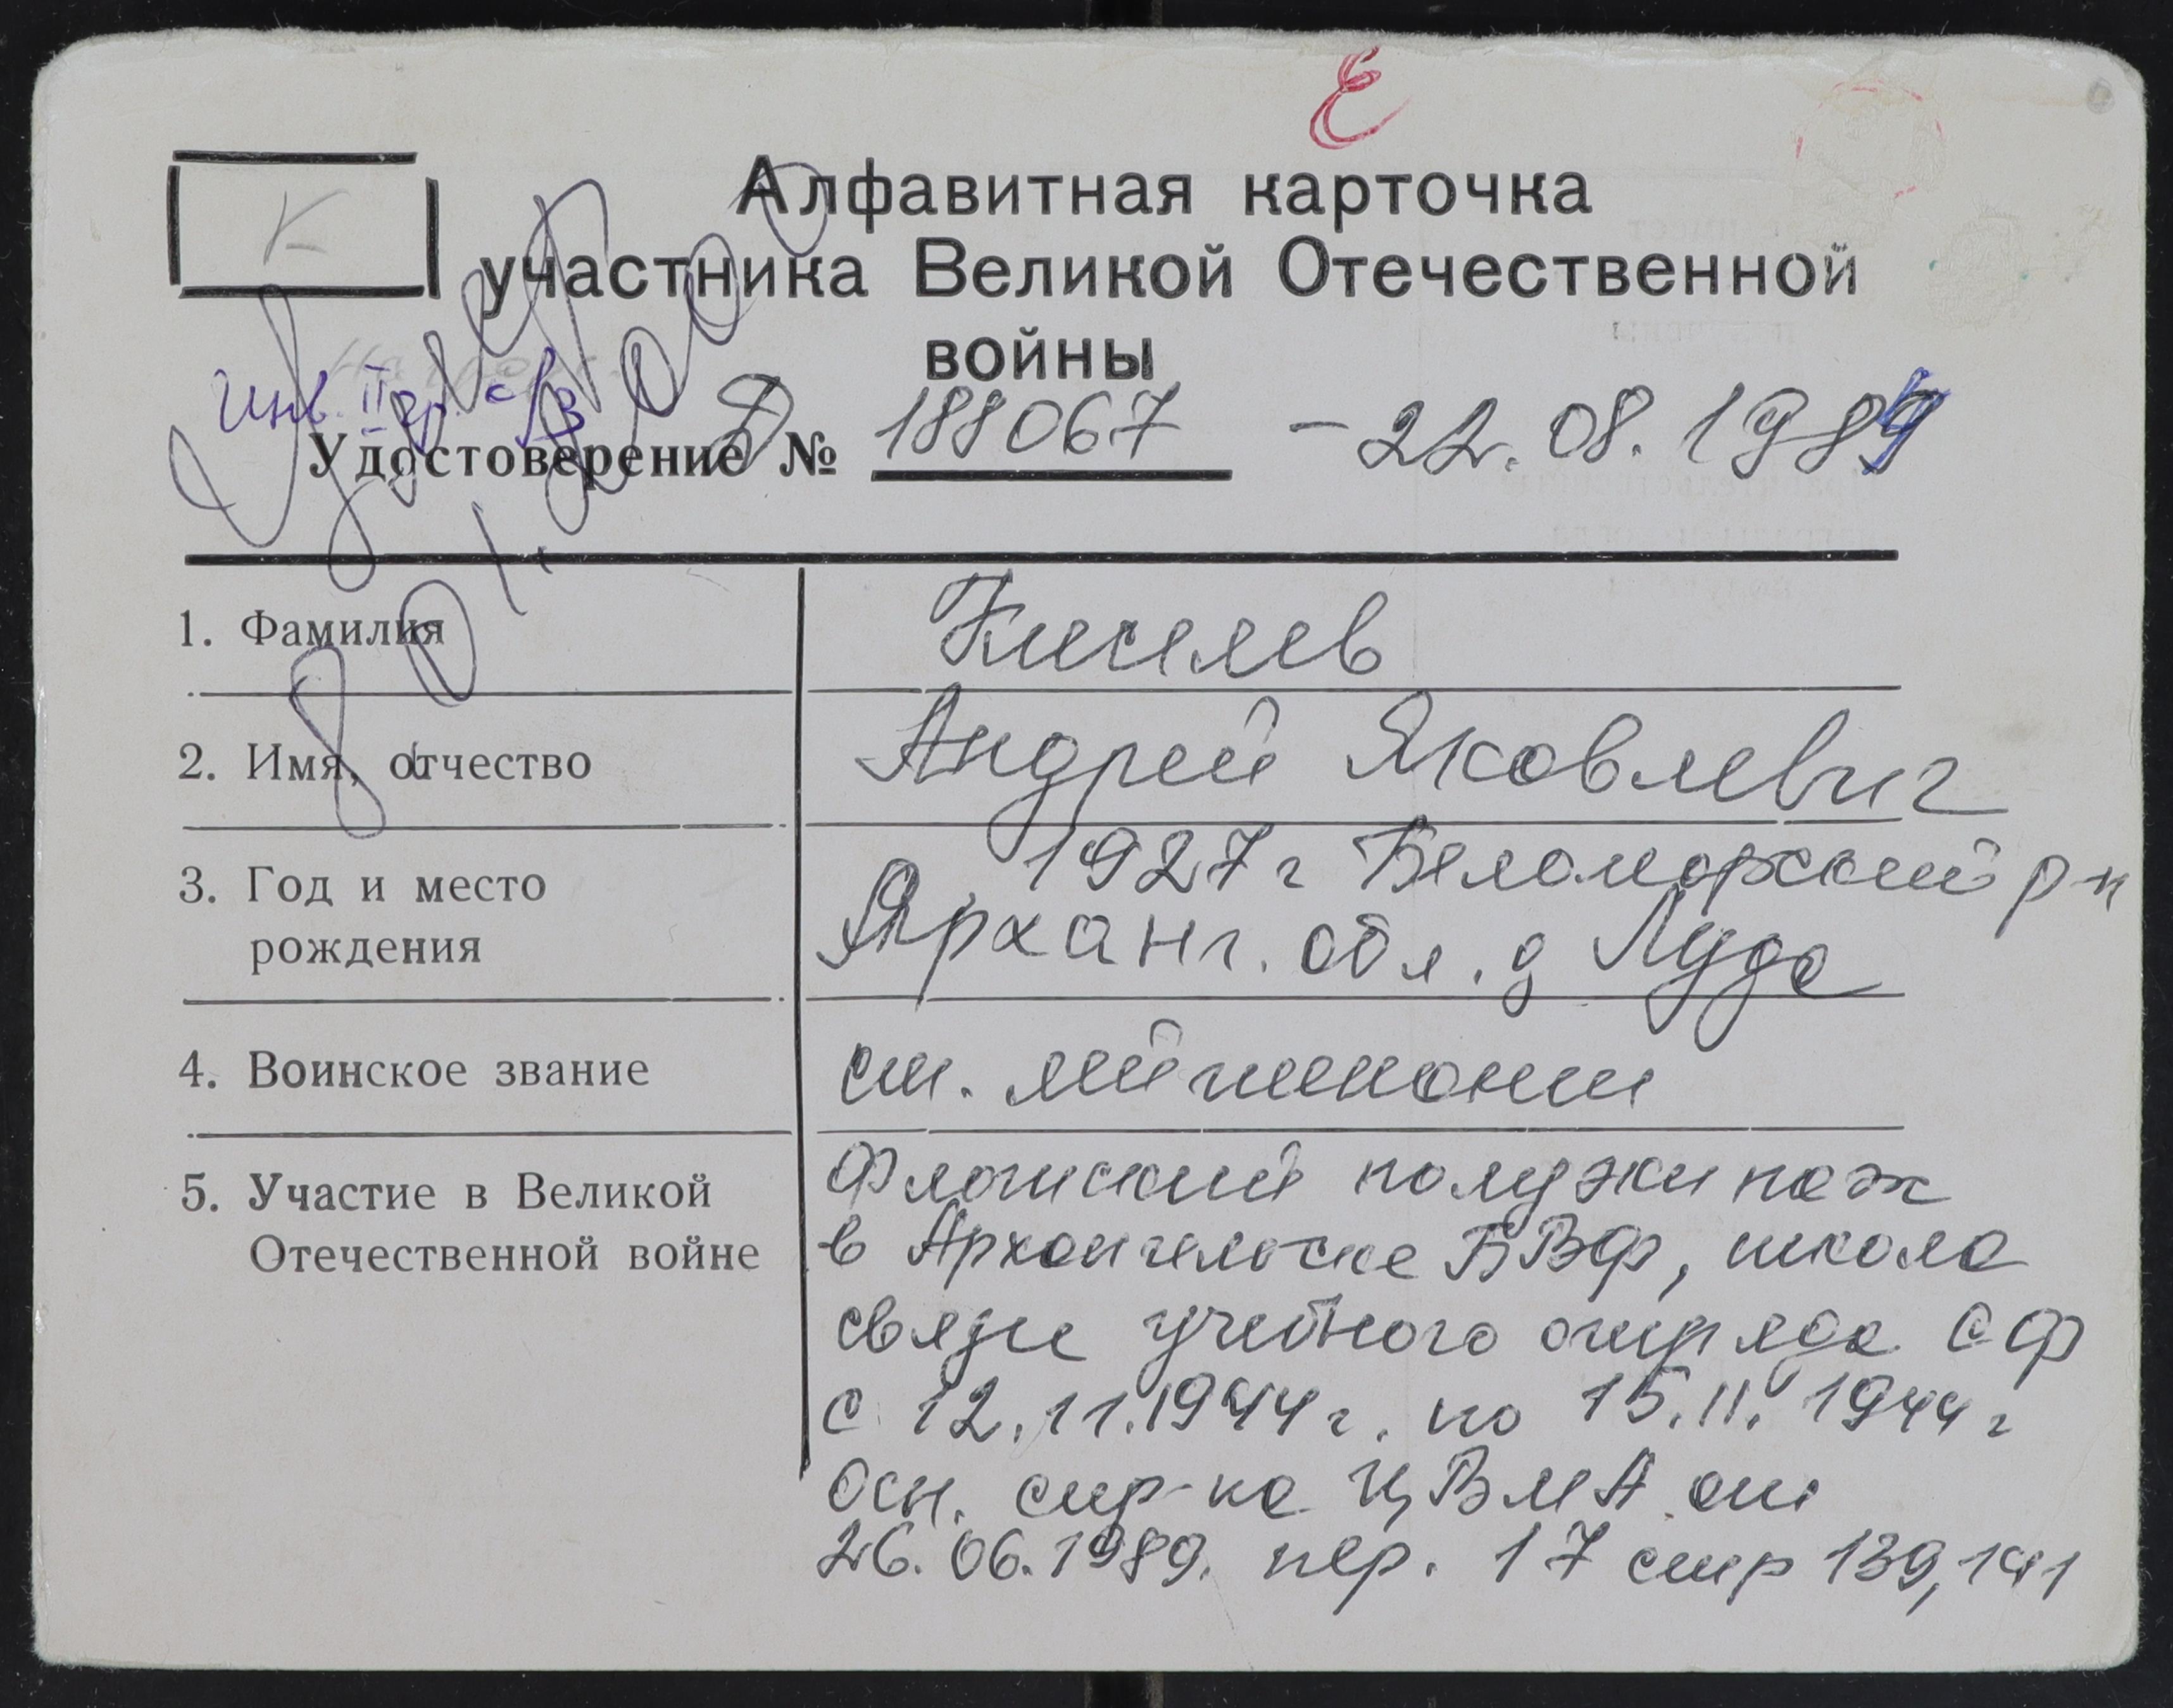 Е
К
Алфавитная карточка
участника Великой Отечественной
войны
Инв. II гр. с/з
Умер
8.01.2000
Удостоверение Д № 188067 - 22.08.1989
1. Фамилия
Киселев
2. Имя, отчество
Андрей Яковлевич
3. Год и место
рождения
1927 г Беломорский р-н
Арханг. обл. д Луда
4. Воинское звание
ст. лейтенант
5. Участие в Великой
Отечественной войне
Флотский полуэкипаж
в Архангельске БВФ, школа
связи учебного отряда СФ
с 12.11.1944 г. по 15.11.1944 г
Осн. спр-ка ЦВМА от
26.06.1989. пер. 17 стр 139, 141